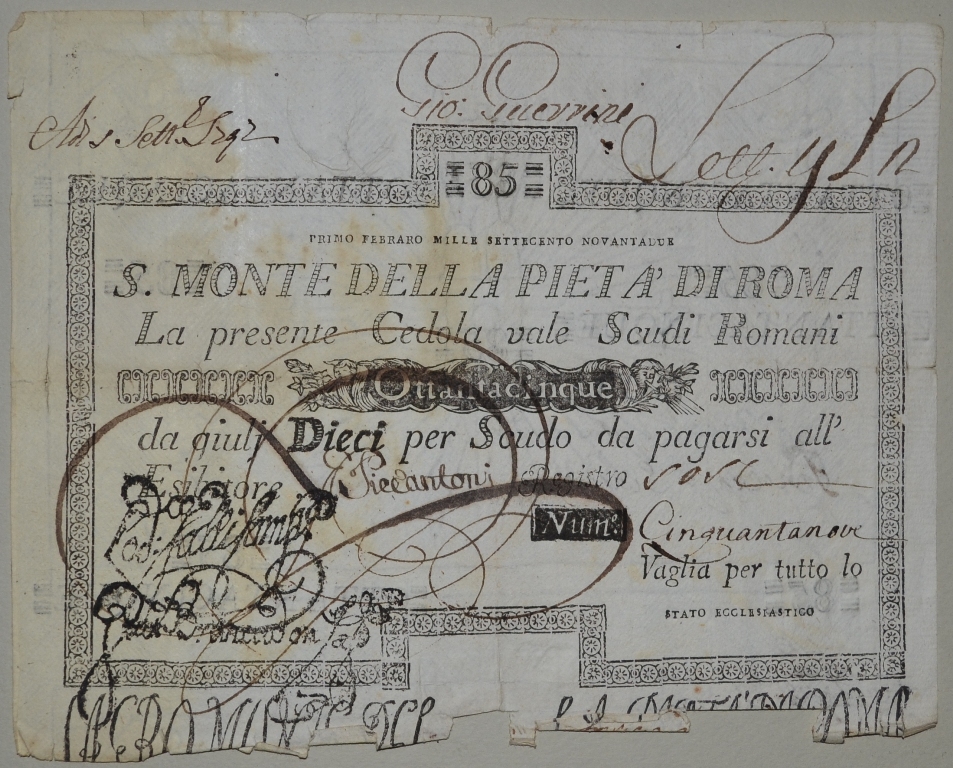 Gio: Guerrini
85
PRIMO FEBRARO MILLE SETTECENTO NOVANTADUE
S. MONTE DELLA PIETA' DI ROMA
La presente Cedola vale Scudi Romani
Ottantacinque
da giulj Dieci per Scudo da pagarsi all'
Esibitore Piccantoni Registro
Num: Cinquantanove
Vaglia per tutto lo
STATO ECCLESIASTICO